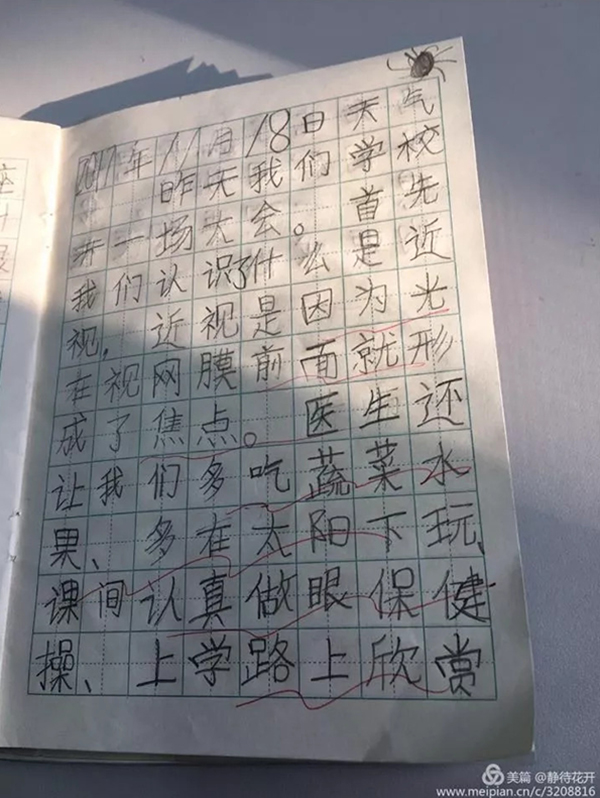 2017年11月18日天气
昨天我们学校
开一场大会。首先
我们认识了什么是近
视,近视是因为光
在视网膜前面就形
成了焦点。医生还
让我们多吃蔬菜水
果、多在太阳下玩、
课间认真做眼保健
操、上学路上欣赏
美篇 @静待花开
www.meipian.cn/c/3208816